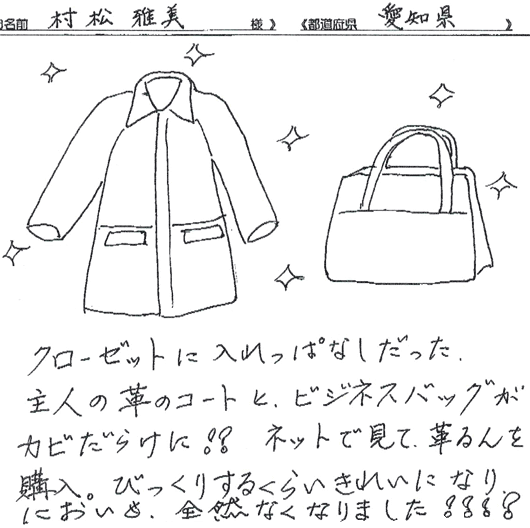 お名前 村松雅美 様 》 《都道府県 愛知県 》
クローゼットに入れっぱなしだった、
主人の革のコートと、ビジネスバッグが
カビだらけに!! ネットで見て、革るんを
購入。びっくりするくらいきれいになり、
においも、全然なくなりました!!!!